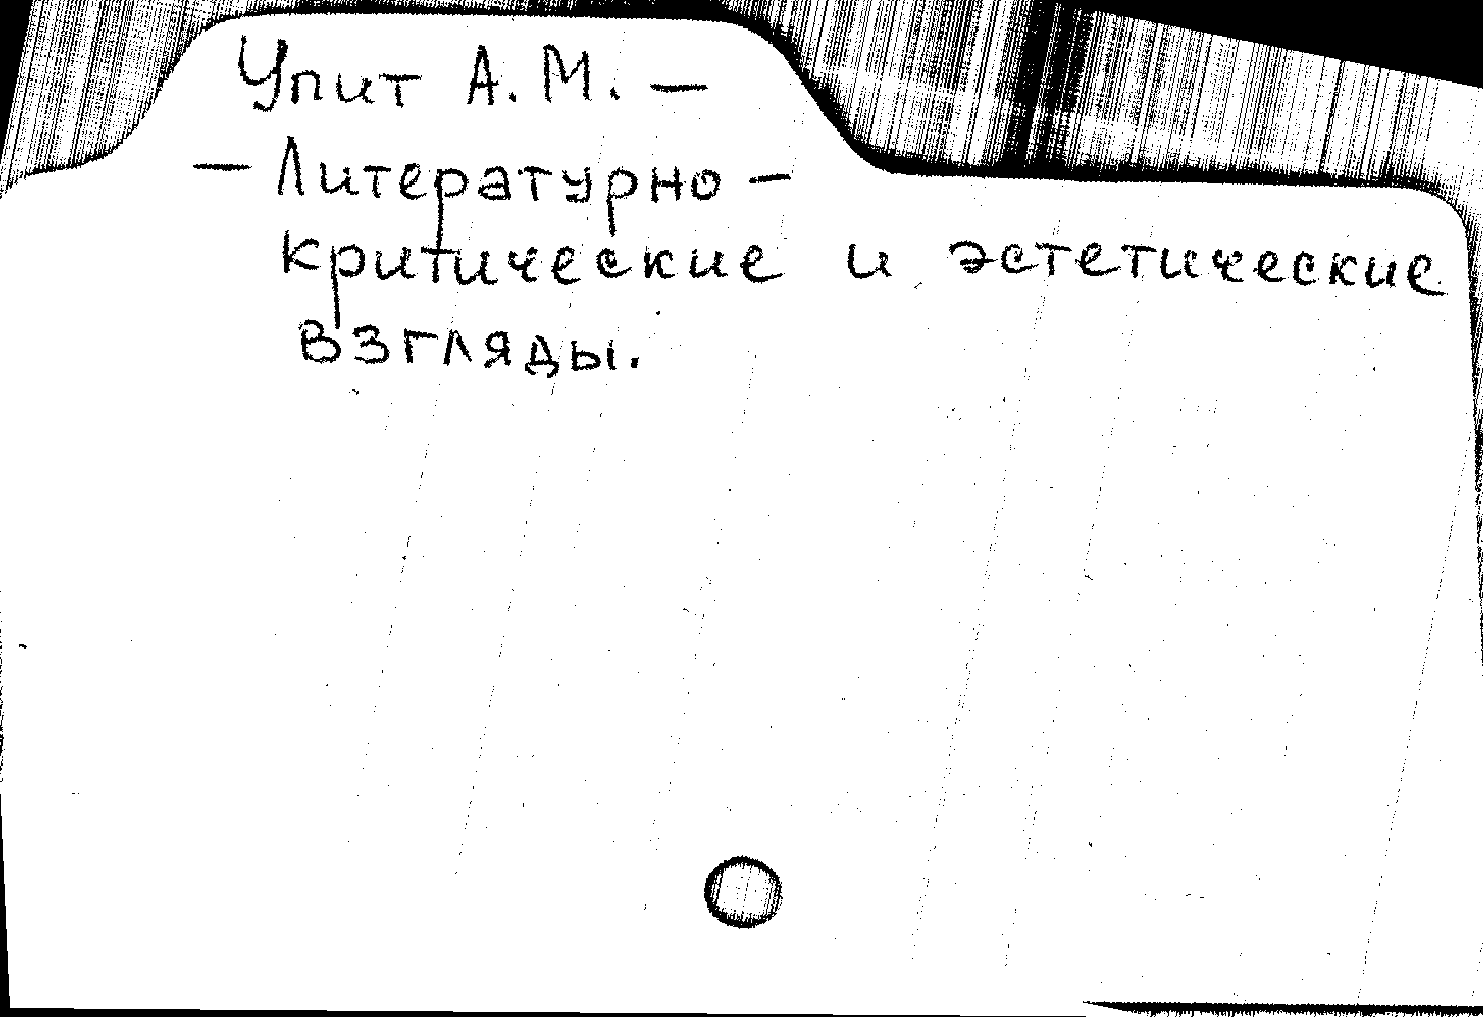 Упит А. М. —
— Литературно —
критические и эстетические
взгляды.